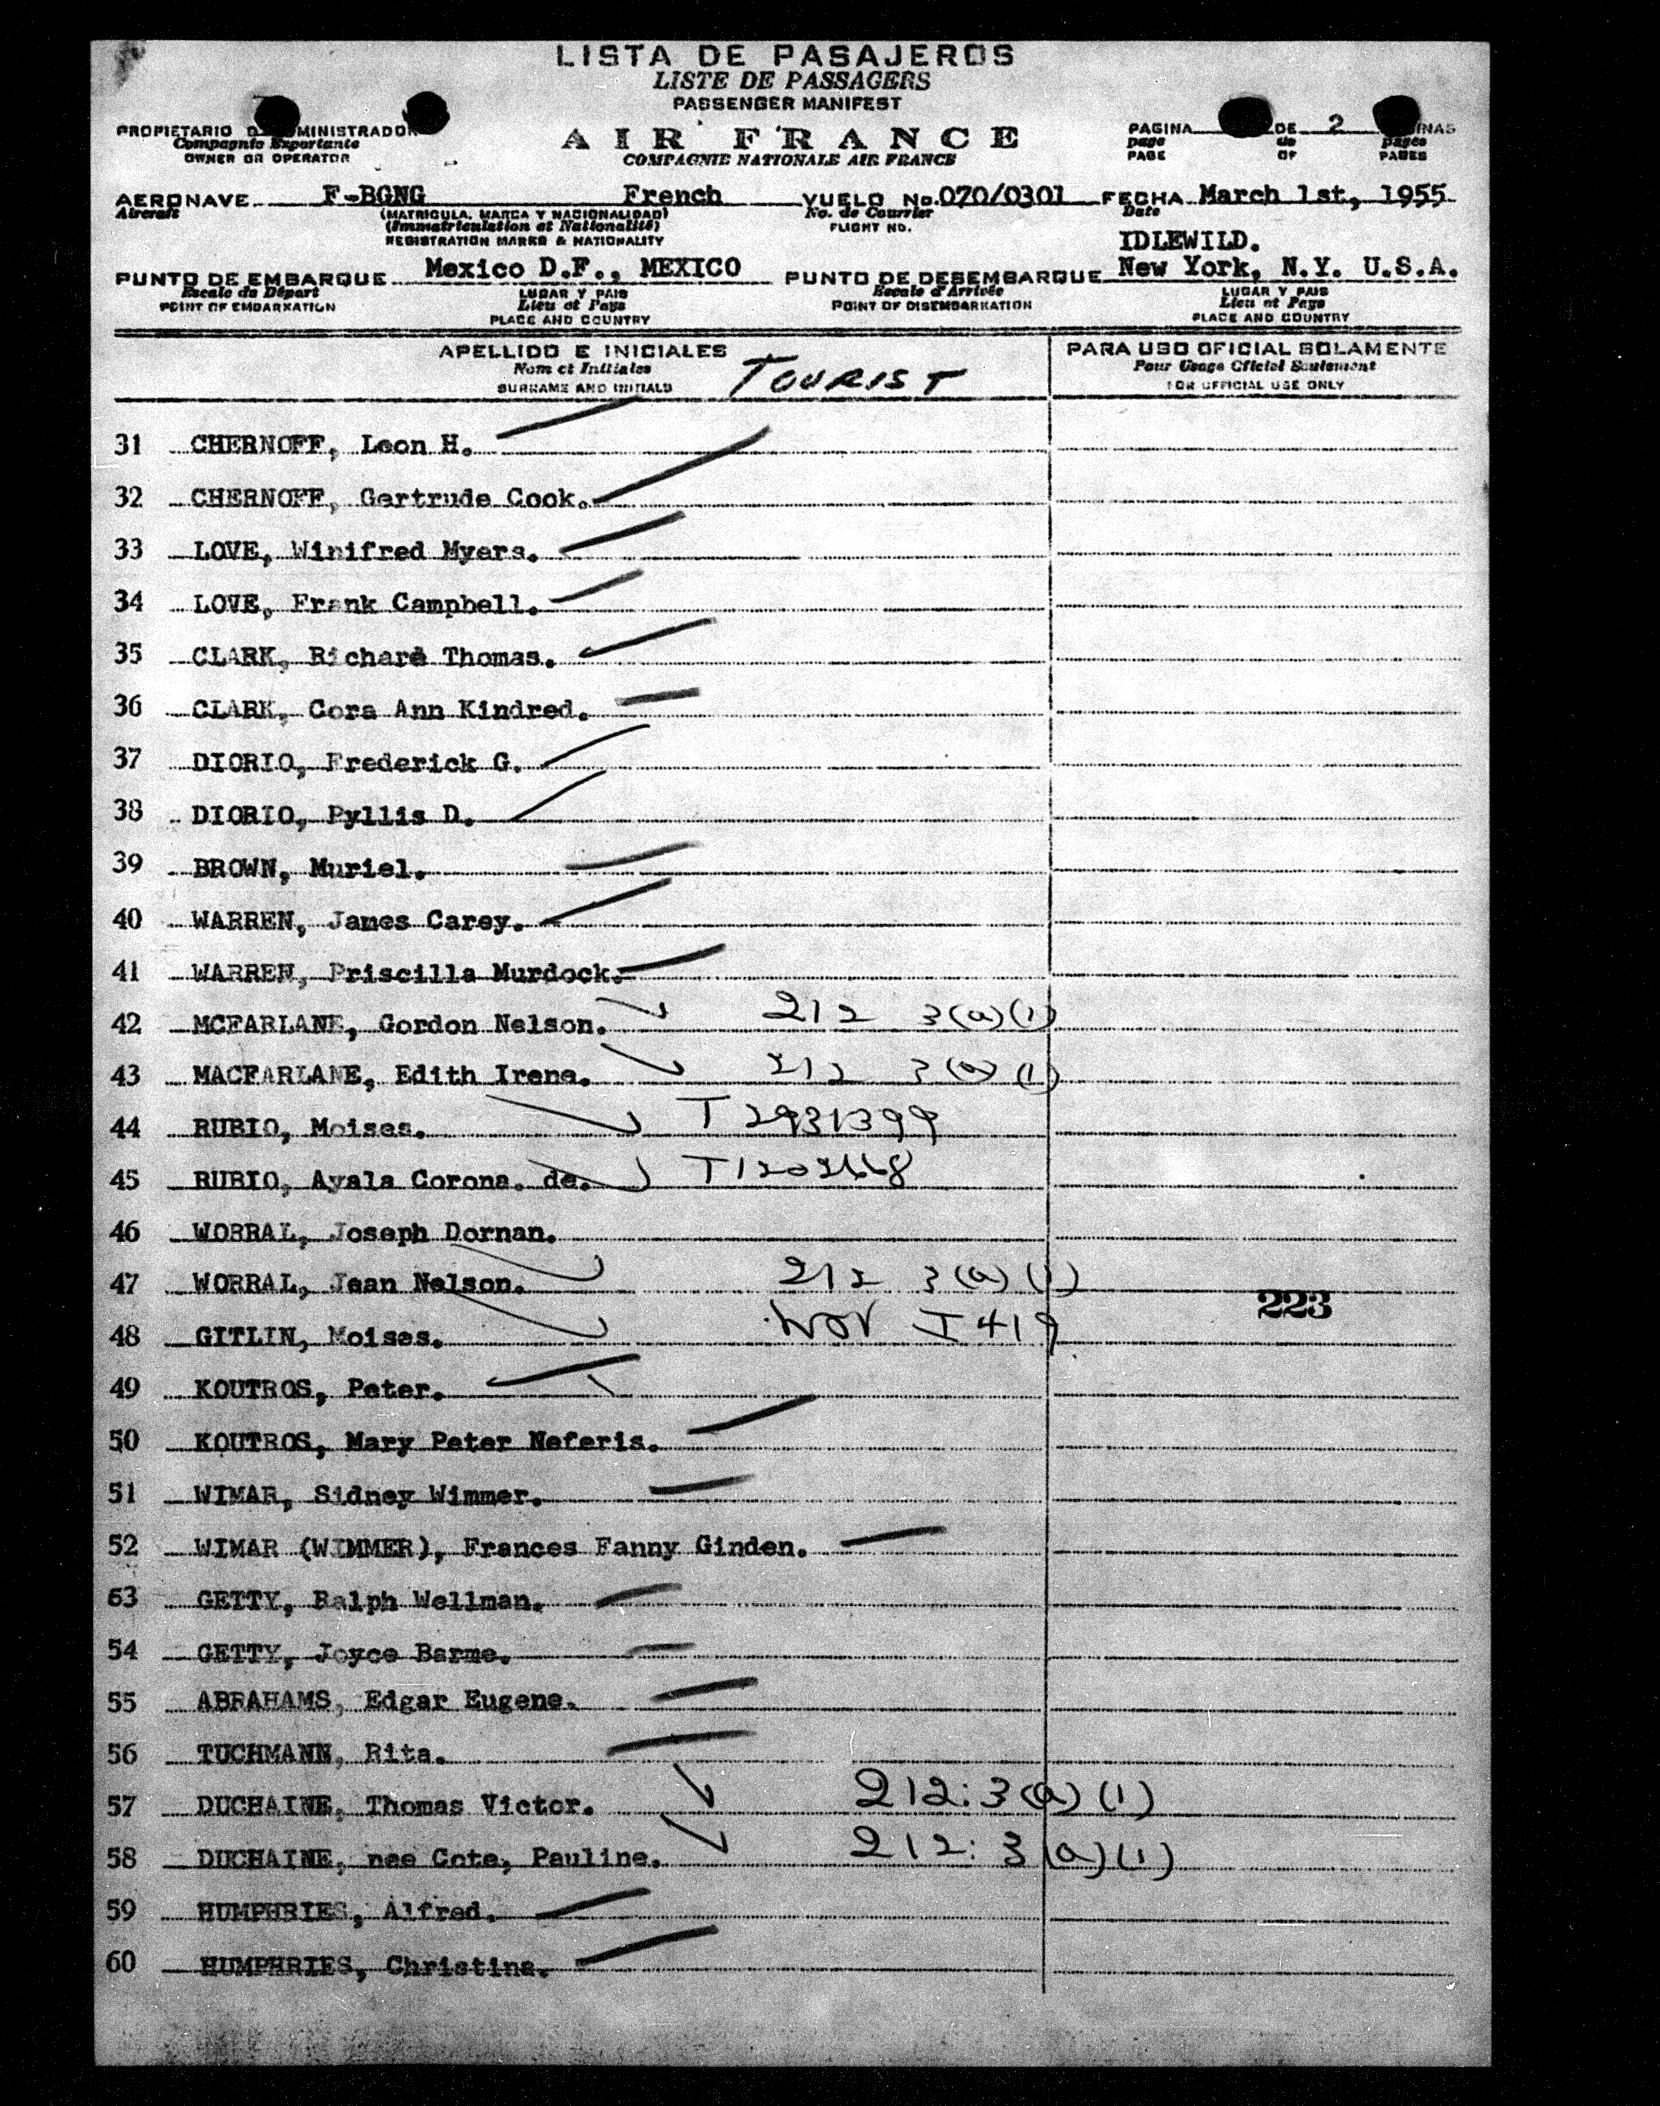 LISTA DE PASAJEROS
LISTE DE PASSAGERS
PASSENGER MANIFEST
PROPIETARIO O ADMINISTRADOR
Compagnie Exportante
OWNER OR OPERATOR
AIR FRANCE
COMPAGNIE NATIONALE AIR FRANCE
PAGINA DE 2 PAGINAS
page de pages
PAGE OF PAGES
AERONAVE F-BGNG French VUELO No. 070/0301 FECHA March 1st, 1955
Aircraft (MATRICULA, MARCA Y NACIONALIDAD) No. de Courrier Date
(Immatriculation et Nationalité) FLIGHT NO.
REGISTRATION MARKS & NATIONALITY
IDLEWILD.
PUNTO DE EMBARQUE Mexico D.F., MEXICO PUNTO DE DESEMBARQUE New York, N.Y. U.S.A.
Escale du Départ LUGAR Y PAIS Escale d'Arrivée LUGAR Y PAIS
POINT OF EMBARKATION Lieu et Pays POINT OF DISEMBARKATION Lieu et Pays
PLACE AND COUNTRY PLACE AND COUNTRY
APELLIDO E INICIALES PARA USO OFICIAL SOLAMENTE
Nom et Initiales TOURIST Pour Usage Officiel Seulement
SURNAME AND INITIALS FOR OFFICIAL USE ONLY
31 CHERNOFF, Leon H.
32 CHERNOFF, Gertrude Cook.
33 LOVE, Winifred Myers.
34 LOVE, Frank Campbell.
35 CLARK, Richard Thomas.
36 CLARK, Cora Ann Kindred.
37 DIORIO, Frederick G.
38 DIORIO, Pyllis D.
39 BROWN, Muriel.
40 WARREN, James Carey.
41 WARREN, Priscilla Murdock.
42 MCFARLANE, Gordon Nelson. 212 3(a)(1)
43 MACFARLANE, Edith Irene. 212 3(a)(1)
44 RUBIO, Moises. T 2931399
45 RUBIO, Ayala Corona. de. T1202668
46 WORRAL, Joseph Dornan.
47 WORRAL, Jean Nelson. 212 3(a)(1)
223
48 GITLIN, Moises. I 419
49 KOUTROS, Peter.
50 KOUTROS, Mary Peter Neferis.
51 WIMAR, Sidney Wimmer.
52 WIMAR (WIMMER), Frances Fanny Ginden.
53 GETTY, Ralph Wellman.
54 GETTY, Joyce Barme.
55 ABRAHAMS, Edgar Eugene.
56 TUCHMANN, Rita.
57 DUCHAINE, Thomas Victor. 212:3(a)(1)
58 DUCHAINE, nee Cote, Pauline. 212:3(a)(1)
59 HUMPHRIES, Alfred.
60 HUMPHRIES, Christina.